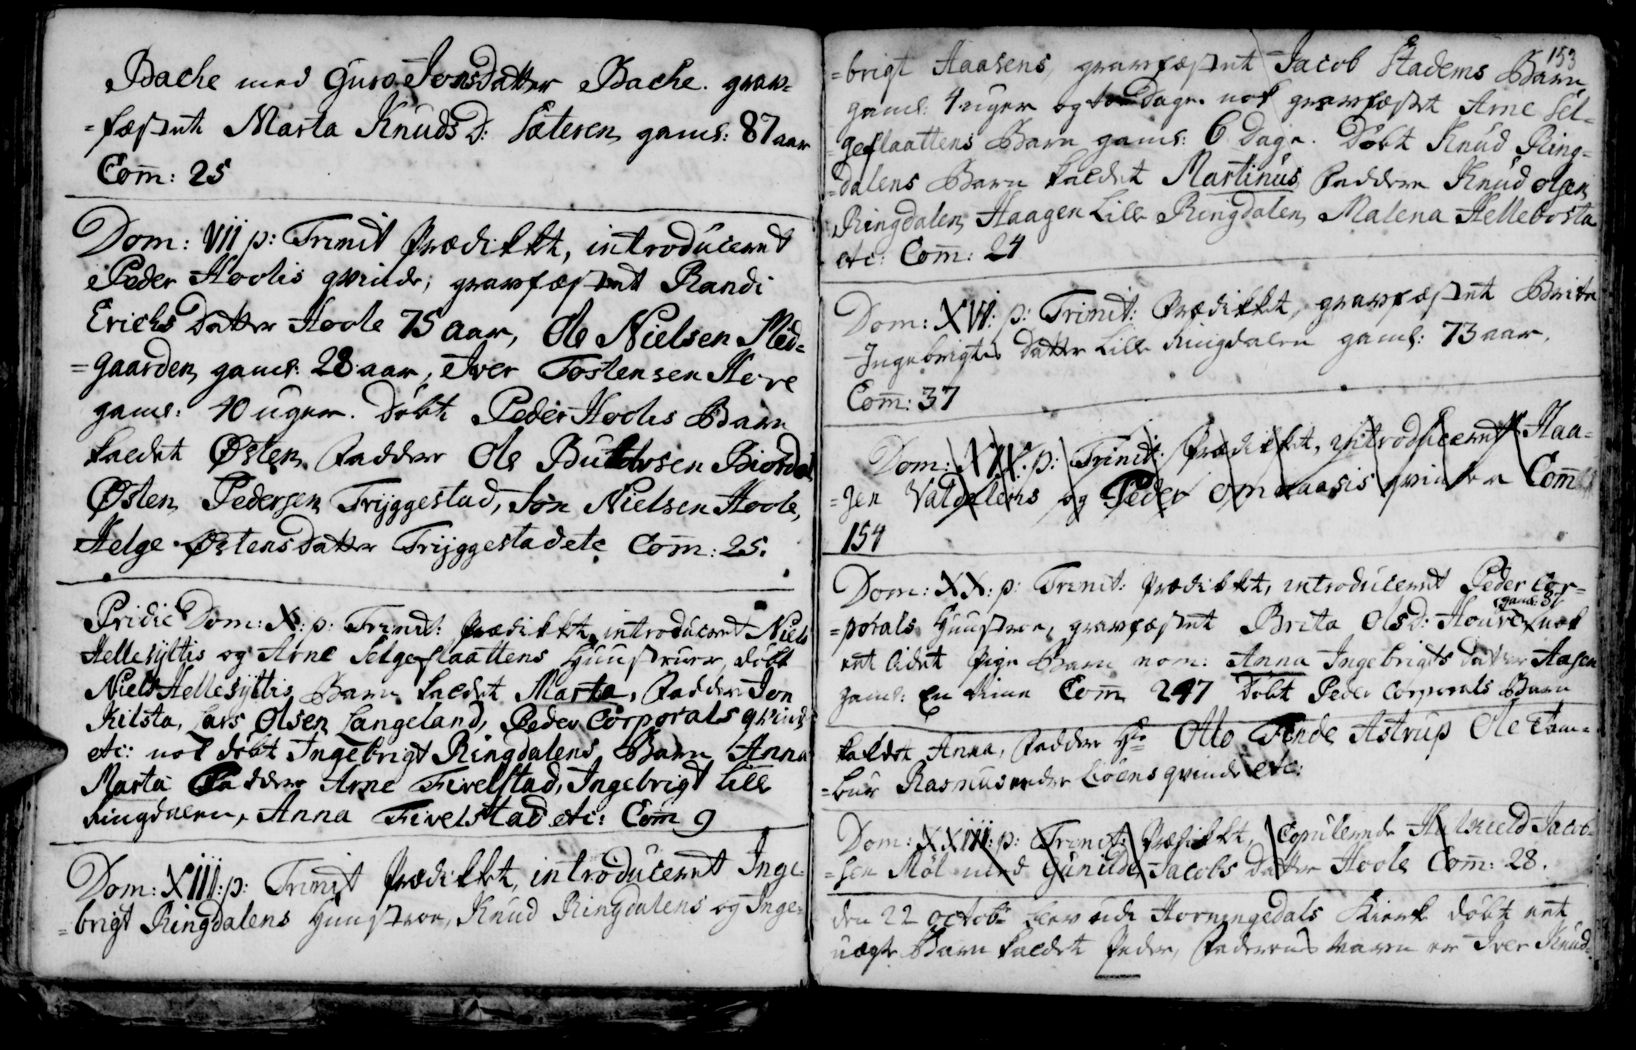 Bache med Guro JonsDatter Bache. grav-
=fæstet Marta Knuds D: Sæteren gaml: 87 aar
Com̄: 25
Dom: VII p: Trinit Prædikkt, introduceret
Peder Hoolis qvinde; gravfæstet Randi
Erichs Datter Hoole 75 aar, Ole Nielsen Med-
=gaarden gaml: 28 aar, Iver Tostensen Hove
gaml: 40 uger. Døbt Peder Hoolis Barn
kaldet Østen, Faddere Ole
Østen Pedersen Tryggestad, Jon Nielsen Hoole,
Helge ØstensDatter Tryggestad etc Com̄: 25.
Pridie Dom: X: p: Trinit: Prædikkt, introduceret Niels
Hellesyltis og Arne Selgeflaattens Huustruer, døbt
Niels Hellesyltis Barn kaldet Marta, Faddere Jon
Kilsta, Lars Olsen Langeland, Peder Corporals qvinde
etc: nok døbt Ingebrigt Ringdalens Barn Anna
Marta Faddere Arne Fivelstad, Ingebrigt Lille
Ringdalen, Anna Fivelstad etc: Com̄ 9
Dom: XIII: p: Trinit Prædikkt, introduceret Inge
=brigt Ringdalens Huustroe, Knud Ringdalens og Inge-
153
=brigt Aasens, gravfæstet Jacob Stadems Barn
gaml: 4 uger og Dage. nok gravfæstet Arne Sel-
=geflaattens Barn gaml: 6 Dage. Døbt Knud Ring-
=dalens Barn kaldet Martinus Faddere Knud Olsen
Ringdalen, Haagen Lille Ringdalen, Malena Hellebosta
etc: Com̄: 24
Dom: XVI: p: Trinit: Prædikkt, gravfæstet Brita
Ingebrigts Datter Lille Ringdalen gaml: 73 aar.
Com̄: 37
Dom: XIX: p: Trinit: Prædikkt, introduceret Haa-
=gen Valdalens og Peder qvinder Com̄
154
Dom: XX: p: Trinit: Prædikkt, introduceret Peder Cor-
=porals Huustroe, gravfæstet Brita Ols D: gaml: 37 nok
et lidet Pige Barn nom: Anna Ingebrigts Datter Aasen
gaml: En time Com̄ 247 Døbt Peder Corporals Barn
kaldet Anna, Faddere Hr Otto Finde Astrup Ole Tam-
=bur Rasmus qvinde etc:
Dom: XXIII: p: Trinit: Prædikkt, Copulerede Jacob-
=sen Møl med Gunilde Jacobs Datter Hoole Com̄: 28.
den 22 octobr blev udi Horningedals Kierk døbt et
uægte Barn kaldet Peder, Faderens Navn er Iver Knud-